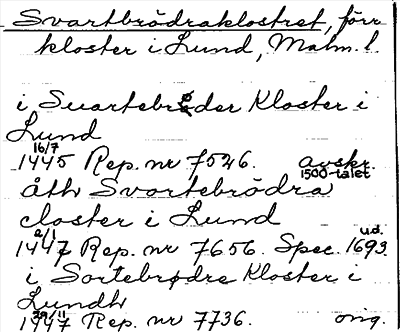 Svartbrödraklostret, förr
kloster i Lund, Malm. l.
i Suartebrøder Kloster i
Lund
16/7 1445 Rep. nr 7546. avskr. 1500-talet
åth Svortebrödra
closter i Lund
1447 Rep. nr 7656. Spec. u.d. 1693.
i Sortebrødre Kloster i
Lundh
29/11 1447 Rep. nr 7736. orig.